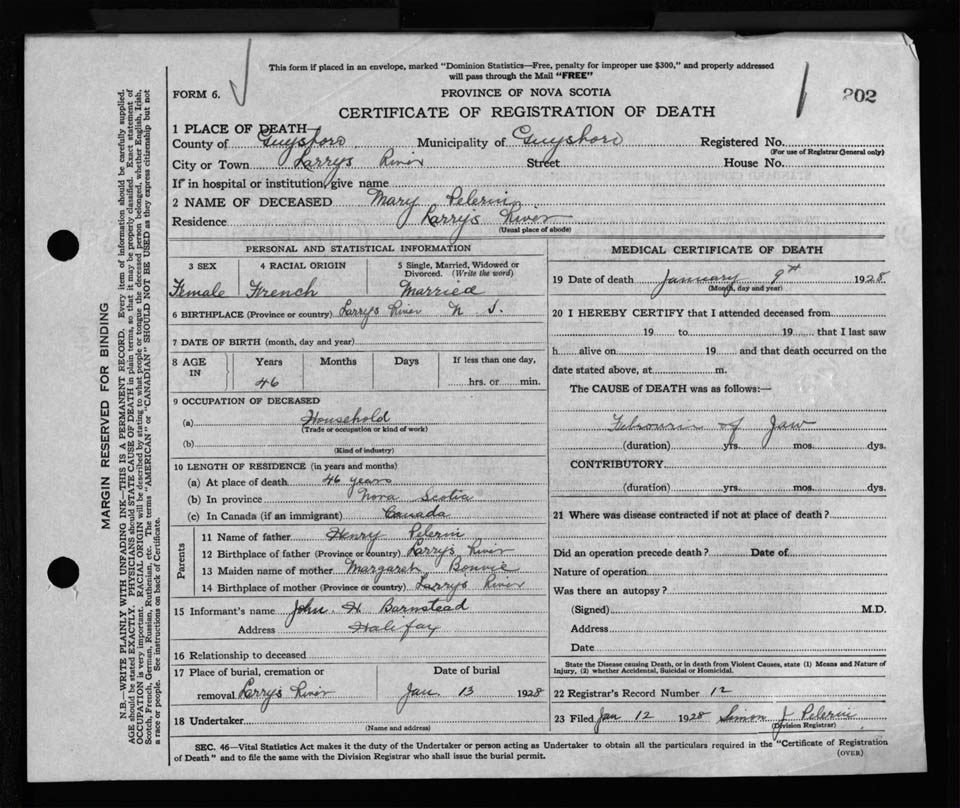 This form if placed in an envelope, marked "Dominion Statistics—Free, penalty for improper use $300," and properly addressed
will pass through the Mail "FREE"
FORM 6.
PROVINCE OF NOVA SCOTIA
202
CERTIFICATE OF REGISTRATION OF DEATH
1 PLACE OF DEATH—
County of Guysboro Municipality of Guysboro Registered No.
(For use of Registrar General only)
City or Town Larrys River Street House No.
If in hospital or institution, give name
2 NAME OF DECEASED Mary Pelerin
Residence Larrys River
(Usual place of abode)
PERSONAL AND STATISTICAL INFORMATION
3 SEX 4 RACIAL ORIGIN 5 Single, Married, Widowed or
Divorced. (Write the word)
Female French Married
6 BIRTHPLACE (Province or country) Larrys River N S.
7 DATE OF BIRTH (month, day and year)
8 AGE IN Years Months Days If less than one day,
46 hrs. or min.
9 OCCUPATION OF DECEASED
(a) Household
(Trade or occupation or kind of work)
(b)
(Kind of industry)
10 LENGTH OF RESIDENCE (in years and months)
(a) At place of death 46 years
(b) In province Nova Scotia
(c) In Canada (if an immigrant) Canada
Parents
11 Name of father Henry Pelerin
12 Birthplace of father (Province or country) Larrys River
13 Maiden name of mother Margaret Bonvie
14 Birthplace of mother (Province or country) Larrys River
15 Informant's name John H Barnstead
Address Halifax
16 Relationship to deceased
17 Place of burial, cremation or Date of burial
removal Larrys River Jan. 13 1928
18 Undertaker
(Name and address)
MEDICAL CERTIFICATE OF DEATH
19 Date of death January 9th 1928
(Month, day and year)
20 I HEREBY CERTIFY that I attended deceased from
19 to 19 that I last saw
h alive on 19 and that death occurred on the
date stated above, at m.
The CAUSE of DEATH was as follows:—
of Jaw
(duration) yrs. mos. dys.
CONTRIBUTORY
(duration) yrs. mos. dys.
21 Where was disease contracted if not at place of death?
Did an operation precede death? Date of
Nature of operation
Was there an autopsy?
(Signed) M.D.
Address
Date
State the Disease causing Death, or in death from Violent Causes, state (1) Means and Nature of
Injury, (2) whether Accidental, Suicidal or Homicidal.
22 Registrar's Record Number 12
23 Filed Jan 12 1928 Simon J Pelerin
(Division Registrar)
SEC. 46—Vital Statistics Act makes it the duty of the Undertaker or person acting as Undertaker to obtain all the particulars required in the "Certificate of Registration
of Death" and to file the same with the Division Registrar who shall issue the burial permit.
(OVER)
MARGIN RESERVED FOR BINDING
N.B.—WRITE PLAINLY WITH UNFADING INK—THIS IS A PERMANENT RECORD. Every item of information should be carefully supplied.
AGE should be stated EXACTLY. PHYSICIANS should STATE CAUSE OF DEATH in plain terms, so that it may be properly classified. Exact statement of
OCCUPATION is very important. RACIAL ORIGIN will be described by stating to what people or tongue the deceased person belonged, whether English, Irish,
Scotch, French, German, Russian, Ruthenian, etc. The terms "AMERICAN" or "CANADIAN" SHOULD NOT BE USED as they express citizenship but not
a race or people. See instructions on back of Certificate.